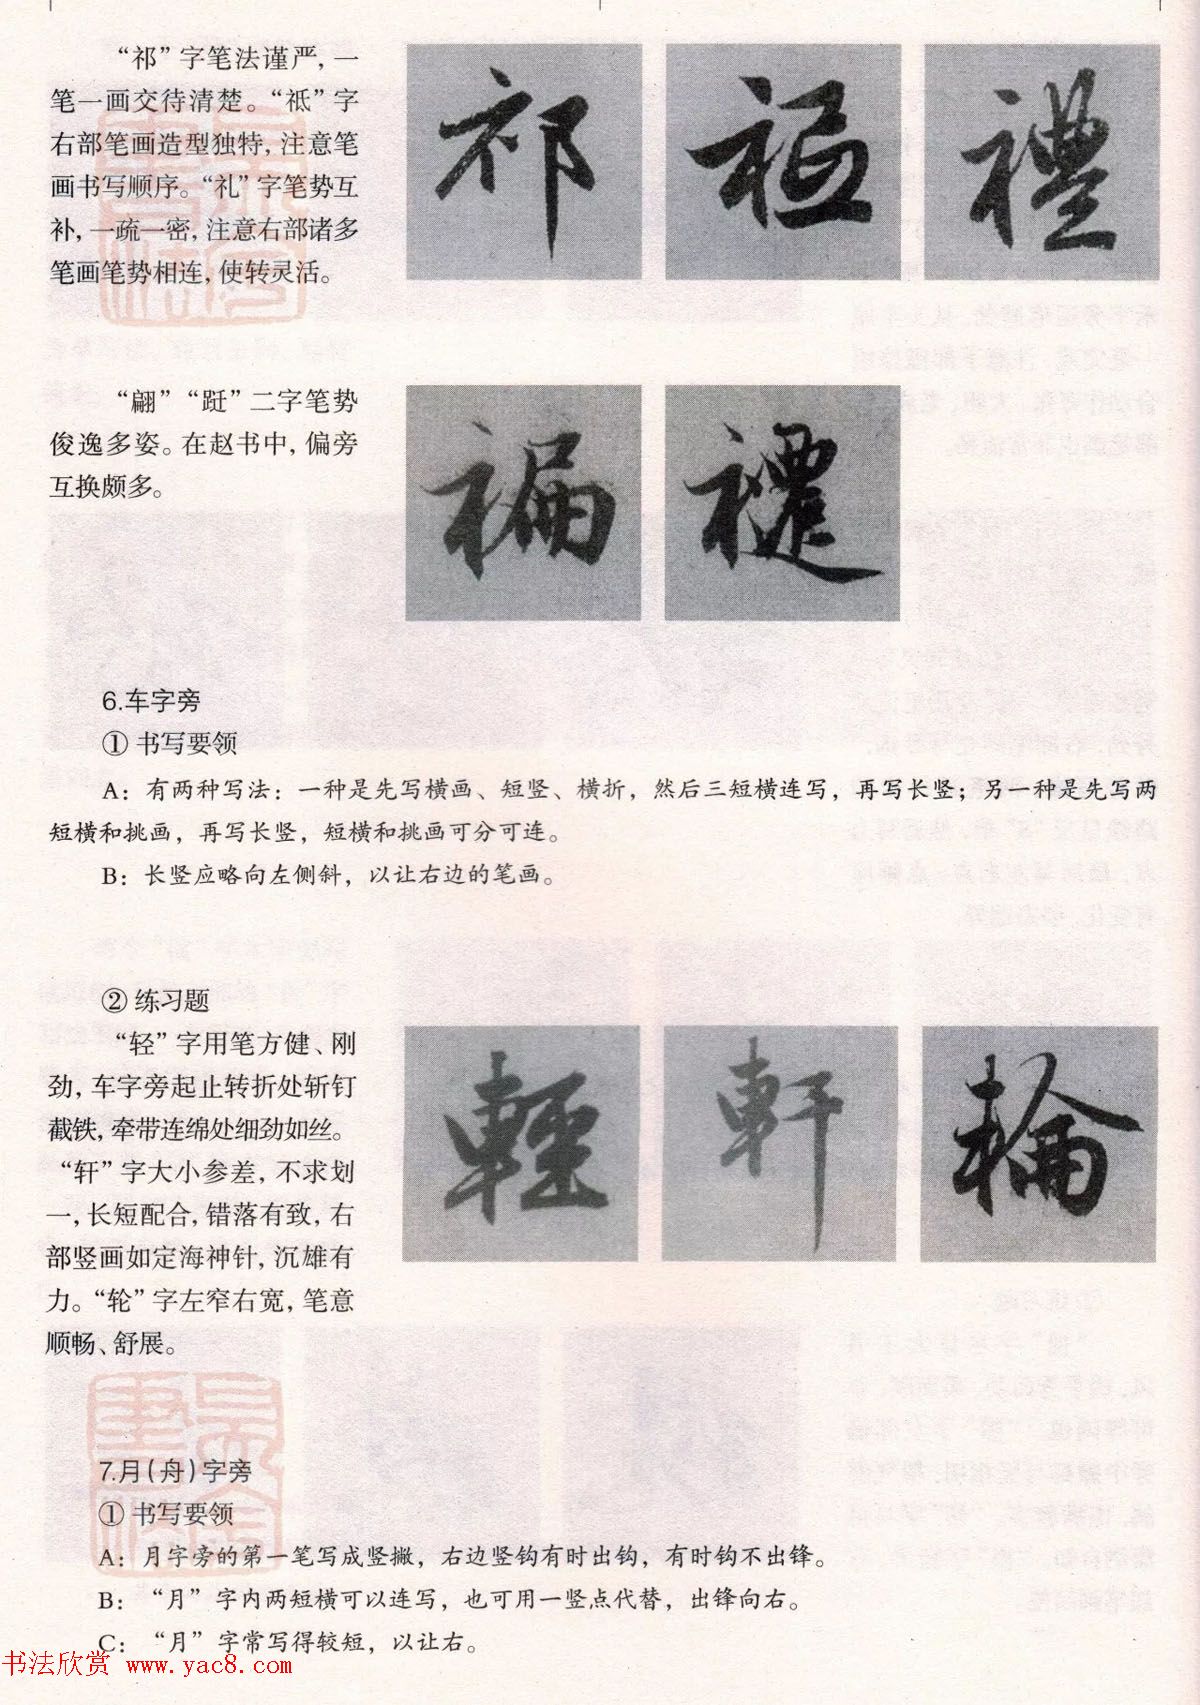 “祁”字笔法谨严，一
笔一画交待清楚。“祗”字
右部笔画造型独特，注意笔
画书写顺序。“礼”字笔势互
补，一疏一密，注意右部诸多
笔画笔势相连，使转灵活。
祁 祗 禮
“翩”“跹”二字笔势
俊逸多姿。在赵书中，偏旁
互换颇多。
6.车字旁
① 书写要领
A：有两种写法：一种是先写横画、短竖、横折，然后三短横连写，再写长竖；另一种是先写两
短横和挑画，再写长竖，短横和挑画可分可连。
B：长竖应略向左侧斜，以让右边的笔画。
② 练习题
“轻”字用笔方健、刚
劲，车字旁起止转折处斩钉
截铁，牵带连绵处细劲如丝。
“轩”字大小参差，不求划
一，长短配合，错落有致，右
部竖画如定海神针，沉雄有
力。“轮”字左窄右宽，笔意
顺畅、舒展。
輕 軒 輪
7.月（舟）字旁
① 书写要领
A：月字旁的第一笔写成竖撇，右边竖钩有时出钩，有时钩不出锋。
B：“月”字内两短横可以连写，也可用一竖点代替，出锋向右。
C：“月”字常写得较短，以让右。
书法欣赏 www.yac8.com